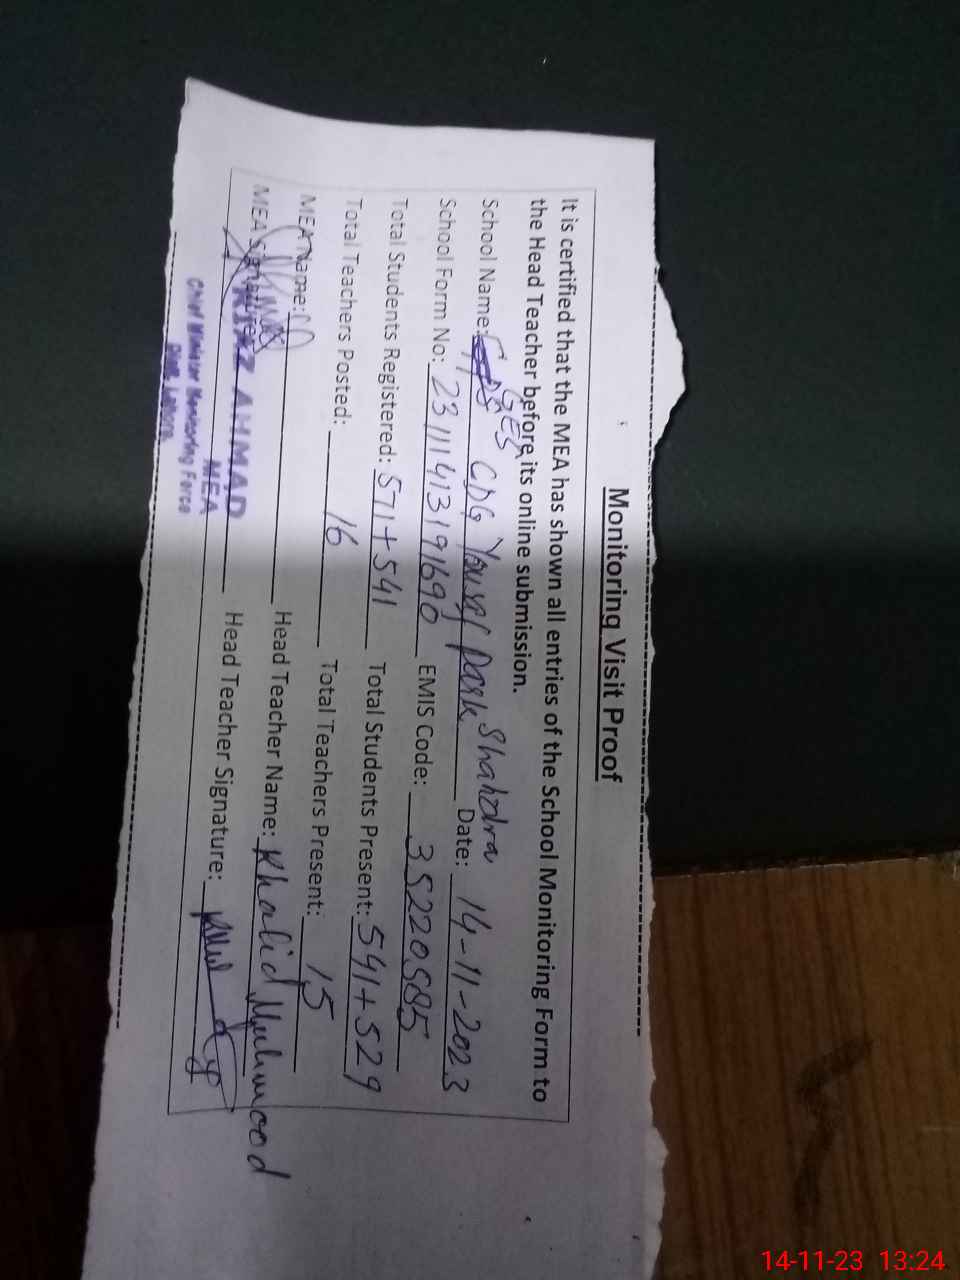 Monitoring Visit Proof
It is certified that the MEA has shown all entries of the School Monitoring Form to
the Head Teacher before its online submission.
GES
School Name: CDG Yousaf Park Shahdra Date: 14-11-2023
School Form No: 23111413191690 EMIS Code: 35220585
Total Students Registered: 571+541 Total Students Present: 541+529
Total Teachers Posted: 16 Total Teachers Present: 15
MEA Name: Head Teacher Name: Khalid Mehmood
MEA Signature: Head Teacher Signature:
RIAZ AHMAD
MEA
Chief Minister Monitoring Force
Distt. Lahore
14-11-23 13:24